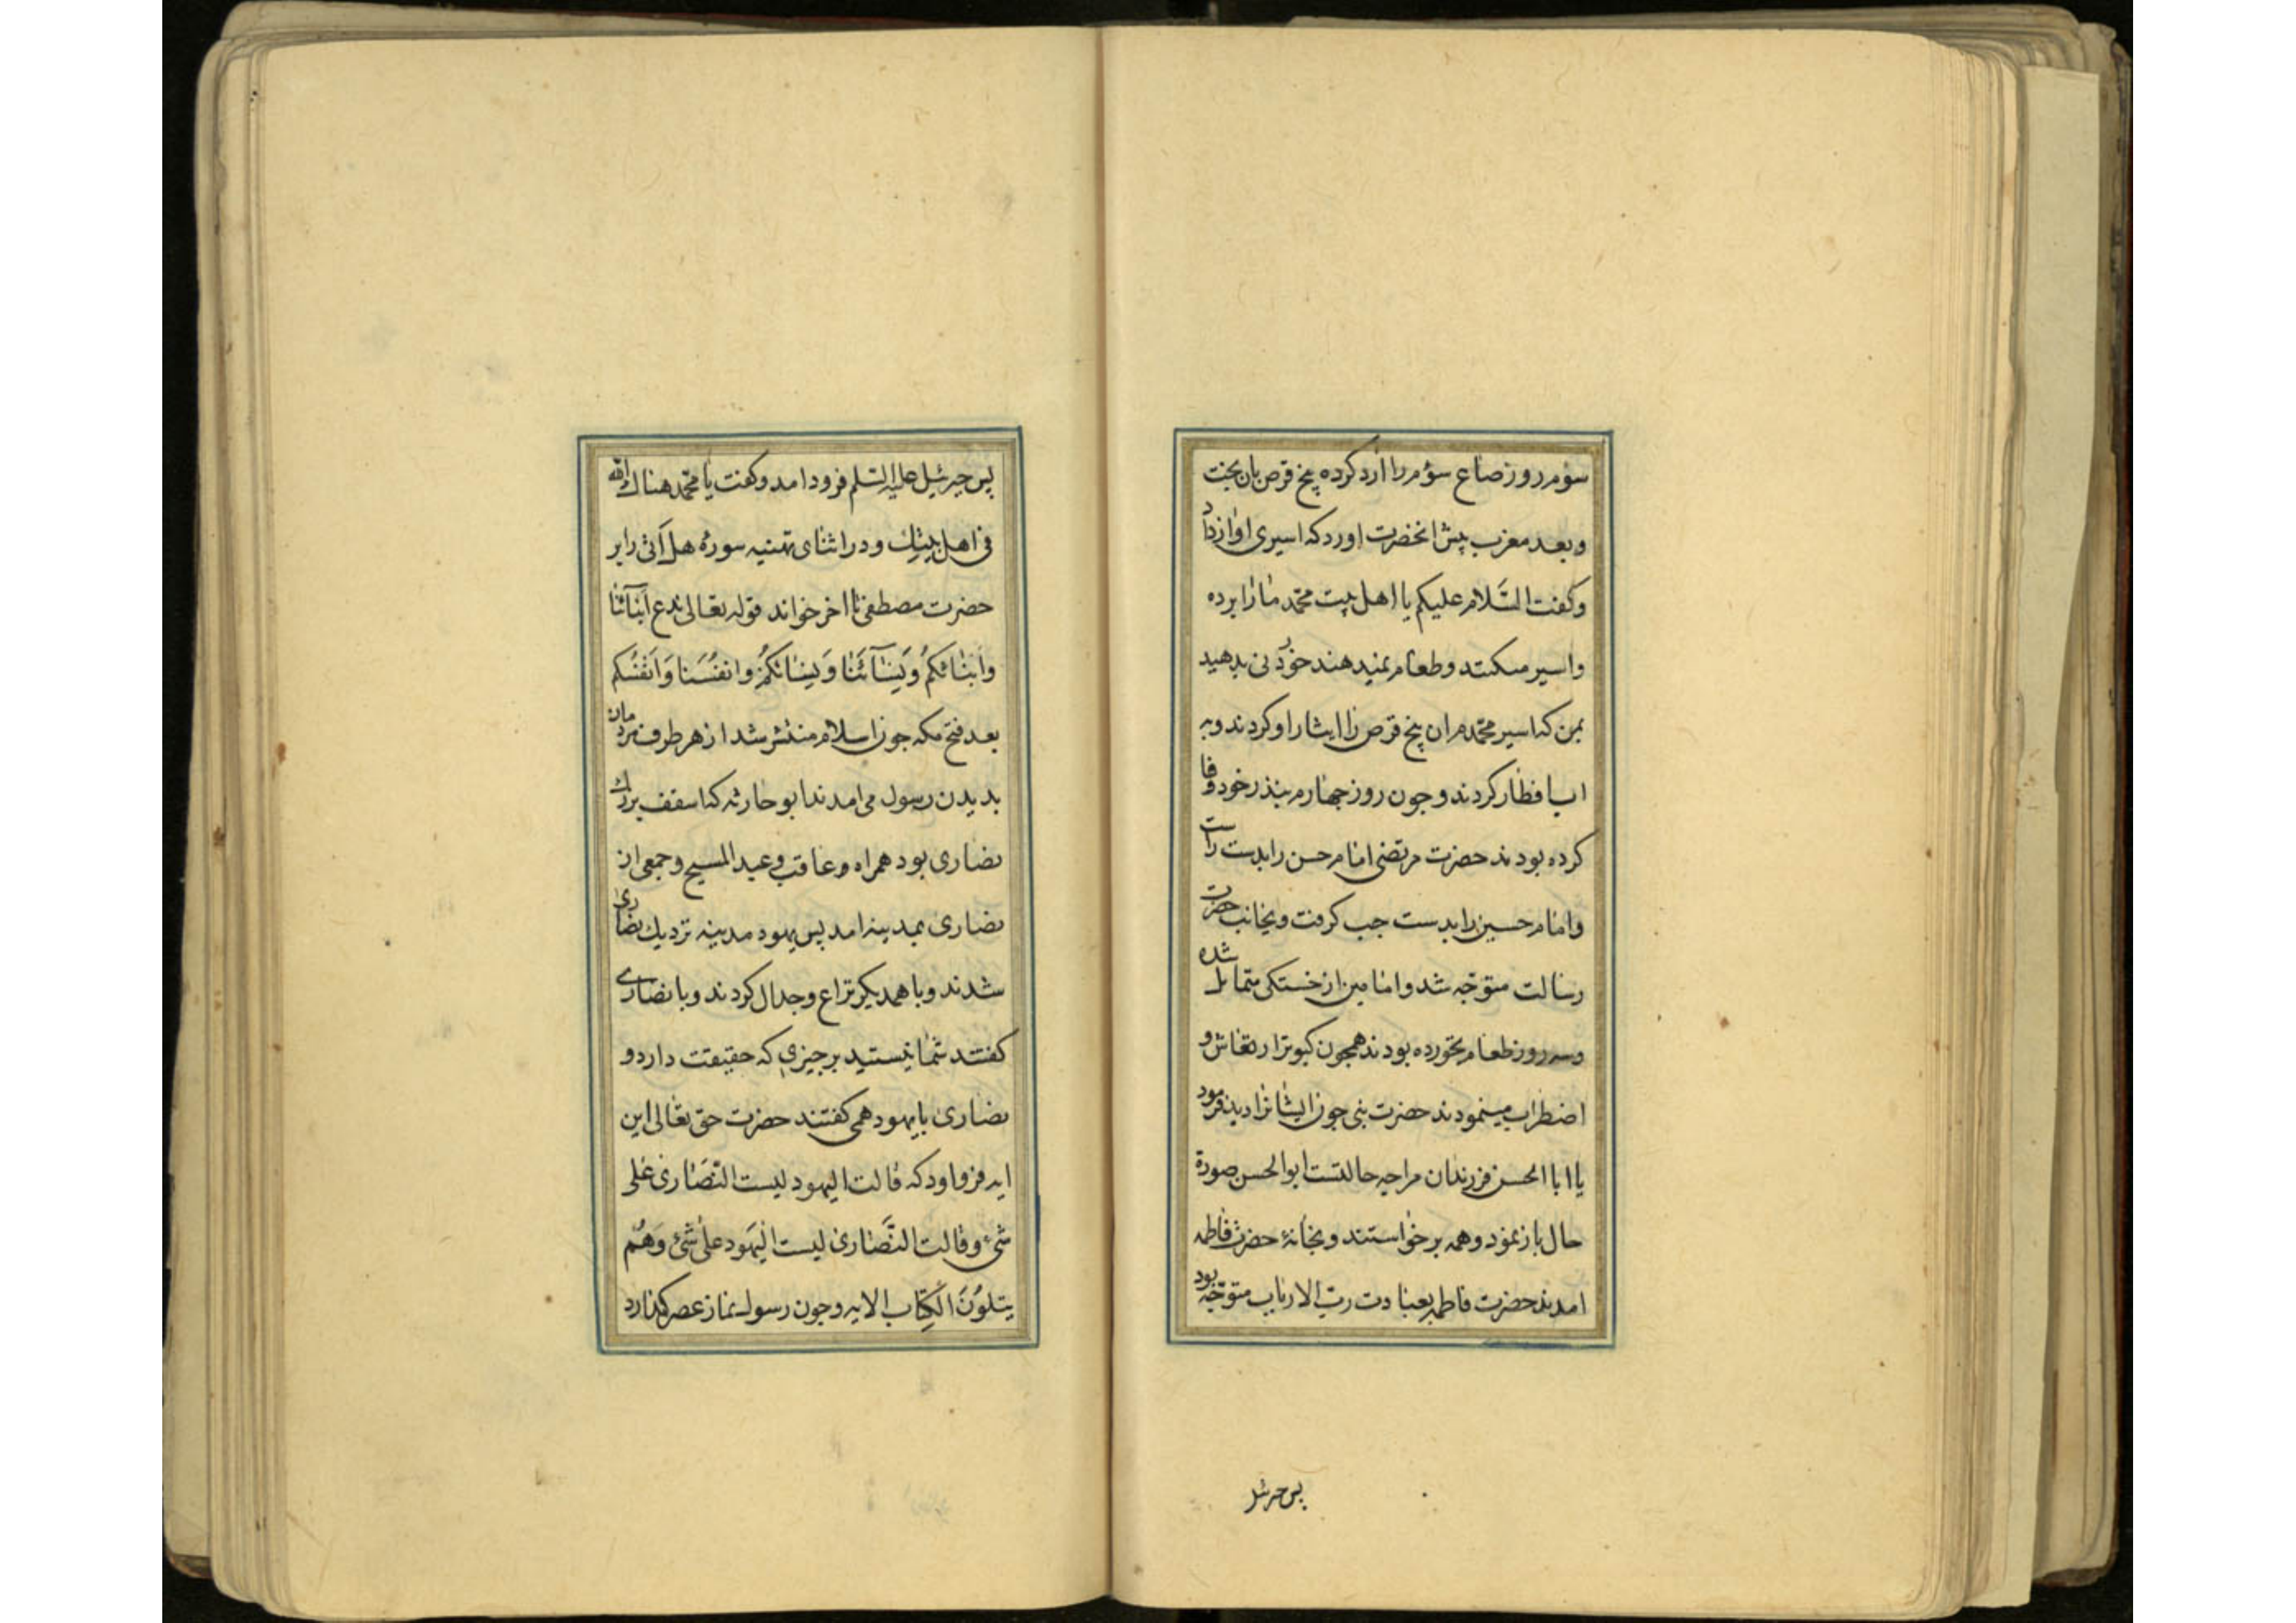 سوم روز صاع سوم را ارد کرده پنج قرص نان بپخت
و بعد مغرب پیش انحضرت اورد که اسیری اواز داد
و کفت السَّلام علیکم یا اهل بیت محمّد ما را برده
و اسیر میکنند و طعام نمیدهند خوردنی بدهید
بمن که اسیر محمّدم ان پنج قرص را ایثار او کردند و به
اب افطار کردند و جون روز جهارم بنذر خود وفا
کرده بودند حضرت مرتضی امام حسن را بدست راست
و امام حسین را بدست جب کرفت و بجانب حضرت
رسالت متوجّه شد و امامین از خستکی متمایل شده
و سه روز طعام نخورده بودند همجون کبوتر ارتعاش و
اضطراب مینمودند حضرت نبی جون ایشانرا دید فرمود
یا ابا الحسن فرزندان مرا جه حالتست ابو الحسن صورة
حال باز نمود و همه برخواستند و بخانهٔ حضرت فاطمه
امدند حضرت فاطمه بعبادت ربّ الارباب متوجّه بود
پس جبرئیل
پس جبرئیل علیه السّلم فرود امد و کفت یا محمّد هناك الله
فی اهل بیتِك و در اثنای تهنیه سورهٔ هل اَتی را بر
حضرت مصطفی تا اخر خواند قوله تعالی ندع اَبنآئنا
واَبنائکمُ وَنِسآئَنا وَنِسائکُم وانفُسَنا وَاَنفُسکم
بعد فتح مکه جون اسلام منتشر شد از هر طرف مردمان
بدیدن رسول می امدند ابو حارثه که اسقف بزرك
نصاری بود همراه و عاقب و عبد المسیح و جمعی از
نصاری بمدینه امد پس یهود مدینه نزدیك نصاری
شدند و با همدیکر نزاع و جدال کردند و با نصاری
کفتند شما نیستید بر جیزی که حقیقت دارد و
نصاری با یهود همی کفتند حضرت حق تعالی این
ایه فرو اورد که قالت الیهود لیست النَّصَاری عَلی
شئ وقالت النَّصَاری لیست الیَهود علی شَئ وَهُم
یتلوُنَ الکِتاب الایه و جون رسول نماز عصر کذارد